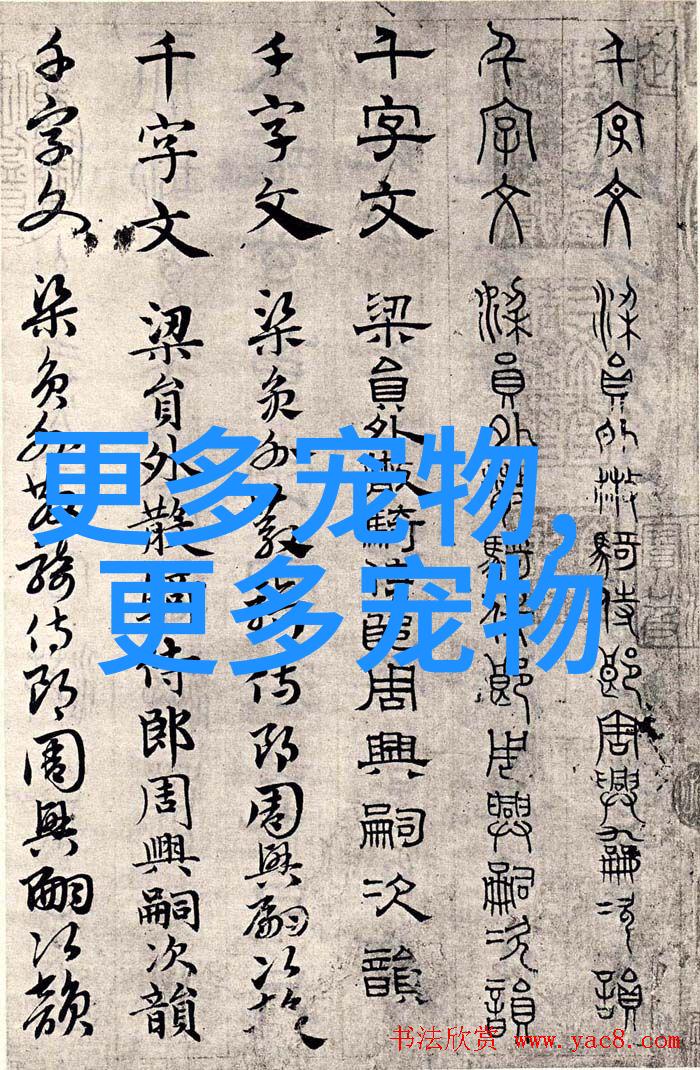 千字文 梁員外散騎侍郎周興嗣次韻
千字文 梁員外散騎侍郎周興嗣次韻
千字文 梁員外散騎侍郎周興嗣次韻
千字文 梁員外散騎侍郎周興嗣次韻
千字文 梁員外散騎侍郎周興嗣次韻
千字文 梁員外散騎侍郎周興嗣次韻
更多宠物,
更多宠物
书法欣赏 www.yac8.com